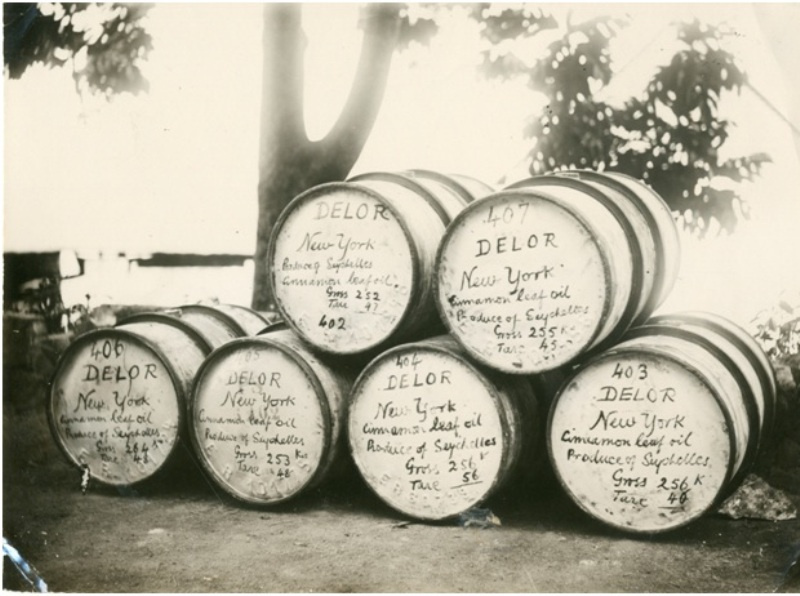 DELOR
New York
Produce of Seychelles
Cinnamon leaf oil
Gross 252
Tare
402
407
DELOR
New York
Cinnamon leaf oil
Produce of Seychelles
Gross 255 K
Tare 45
406
DELOR
New York
Cinnamon leaf oil
Produce of Seychelles
Gross 264 K
Tare 48
DELOR
New York
Cinnamon leaf oil
Produce of Seychelles
Gross 253 Ks
Tare 48
404
DELOR
New York
Cinnamon leaf oil
Produce of Seychelles
Gross 256 K
Tare 56
403
DELOR
New York
Cinnamon leaf oil
Produce of Seychelles.
Gross 256 K
Tare 40